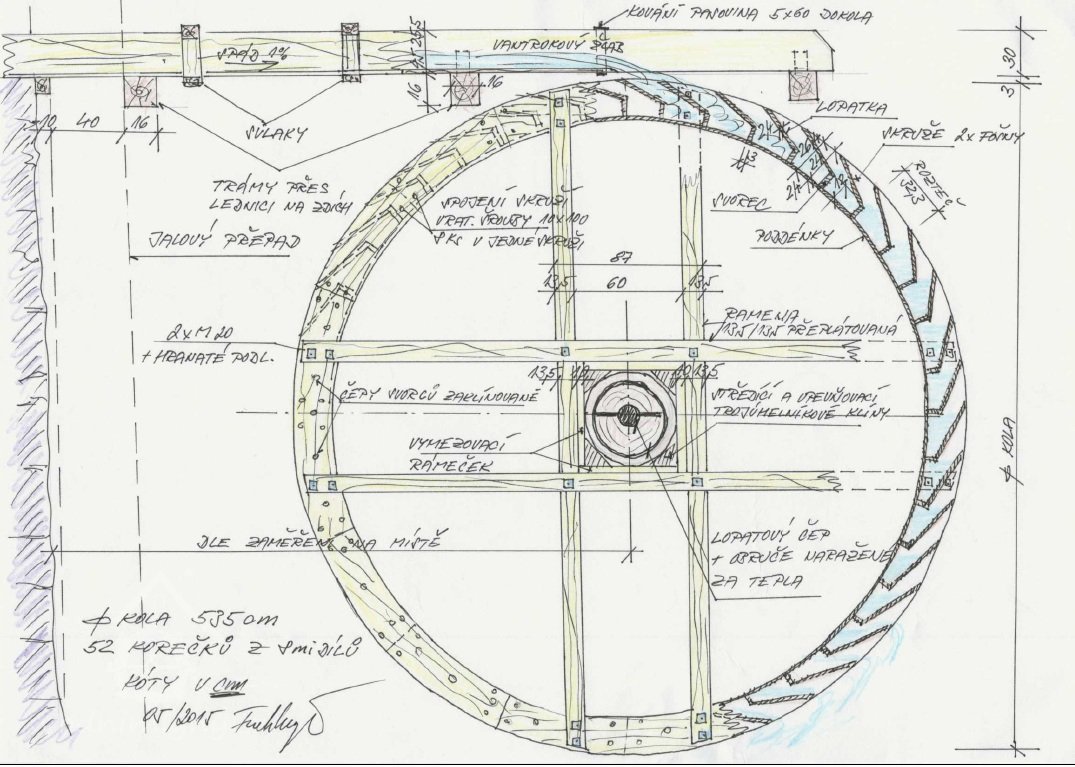 KOVÁNÍ PASOVINA 5x60 DOKOLA
VANTROKOVÝ ŽLAB
SPÁD 1%
25,5
16
16
30
3
10
40
16
SVLAKY
LOPATKA
SKRUŽE 2x FOŠNY
ROZTEČ
32,3
TRÁMY PŘES
LEDNICI NA ZDÍCH
SPOJENÍ SKRUŽÍ
VRAT. ŠROUBY 10x100
8 KS V JEDNÉ SKRUŽI
SVOREC
PODDÉNKY
JALOVÝ PŘEPAD
87
13,5
60
13,5
RAMENA
13,5/13,5 PŘEPLÁTOVANÁ
2xM20
+ HRANATÉ PODL.
13,5
10
10
13,5
ČEPY SVORCŮ ZAKLÍNOVANÉ
STŘEDÍCÍ A UPEVŇOVACÍ
TROJÚHELNÍKOVÉ KLÍNY
VYMEZOVACÍ
RÁMEČEK
ϕ KOLA
DLE ZAMĚŘENÍ NA MÍSTĚ
LOPATOVÝ ČEP
+ OBRUČE NARAŽENÉ
ZA TEPLA
ϕ KOLA 535 cm
52 KOREČKŮ Z 8mi DÍLŮ
KÓTY V cm
05/2015